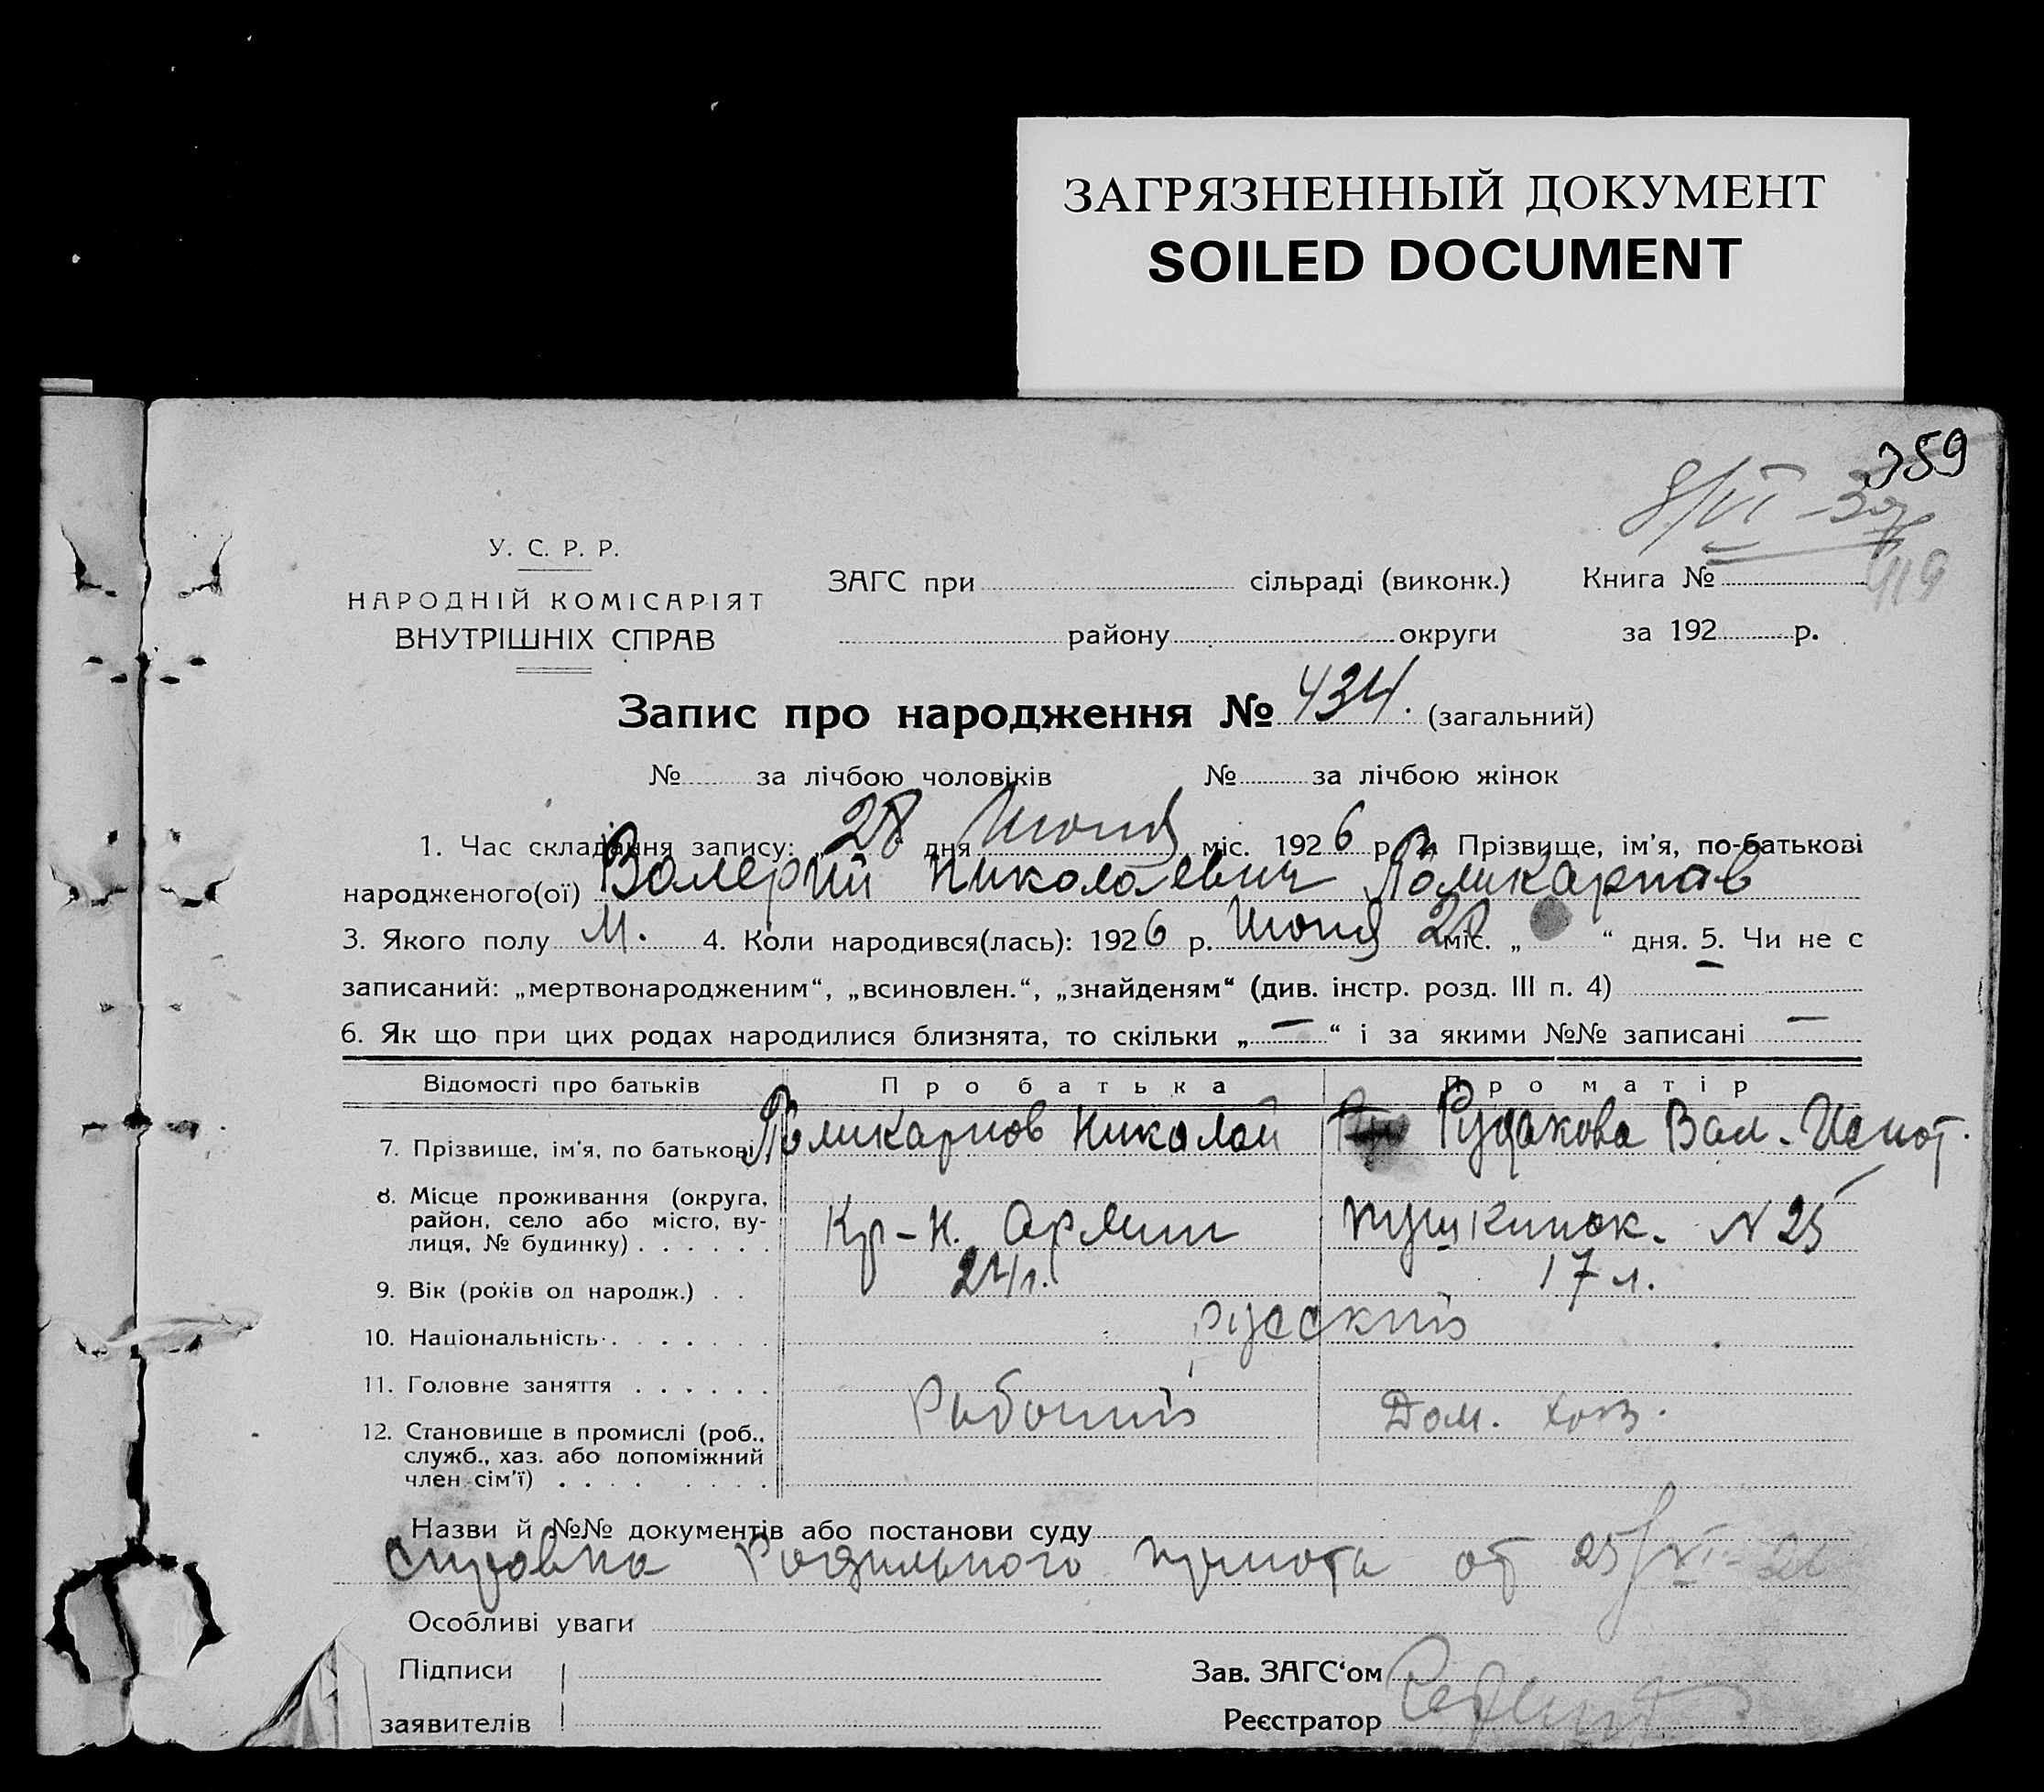 ЗАГРЯЗНЕННЫЙ ДОКУМЕНТ
SOILED DOCUMENT
359
8/VI-37
419
У. С. Р. Р.
НАРОДНІЙ КОМІСАРІЯТ
ВНУТРІШНІХ СПРАВ
ЗАГС при сільраді (виконк.) Книга №
району округи за 192 р.
Запис про народження № 434. (загальний)
№ за лічбою чоловіків № за лічбою жінок
1. Час складання запису: „28“ дня Июня міс. 1926 р. 2. Прізвище, ім'я, по-батькові
народженого(ої) Валерий Николаевич Поликарпов
3. Якого полу М. 4. Коли народився(лась): 1926 р. Июня 20 міс. „ “ дня. 5. Чи не є
записаний: „мертвонародженим“, „всиновлен.“, „знайденям“ (див. інстр. розд. III п. 4) —
6. Як що при цих родах народилися близнята, то скільки „—“ і за якими №№ записані —
Відомості про батьків Про батька Про матір
7. Прізвище, ім'я, по батькові Поликарпов Николай Рудакова Вал. Игнат.
8. Місце проживання (округа, район, село або місто, вулиця, № будинку) . . . . . . Кр-н. Армии Пушкинск. N 25
9. Вік (років од народж.) . . 24 г. 17 л.
10. Національність . . . . . . . русский
11. Головне заняття . . . . . . Рабочий Дом. хоз.
12. Становище в промислі (роб., служб., хаз. або допоміжний член сім'ї) . . . . . . . .
Назви й №№ документів або постанови суду
справка Родильного приюта от 25/VI-26
Особливі уваги
Підписи Зав. ЗАГС‘ом
заявителів Реєстратор